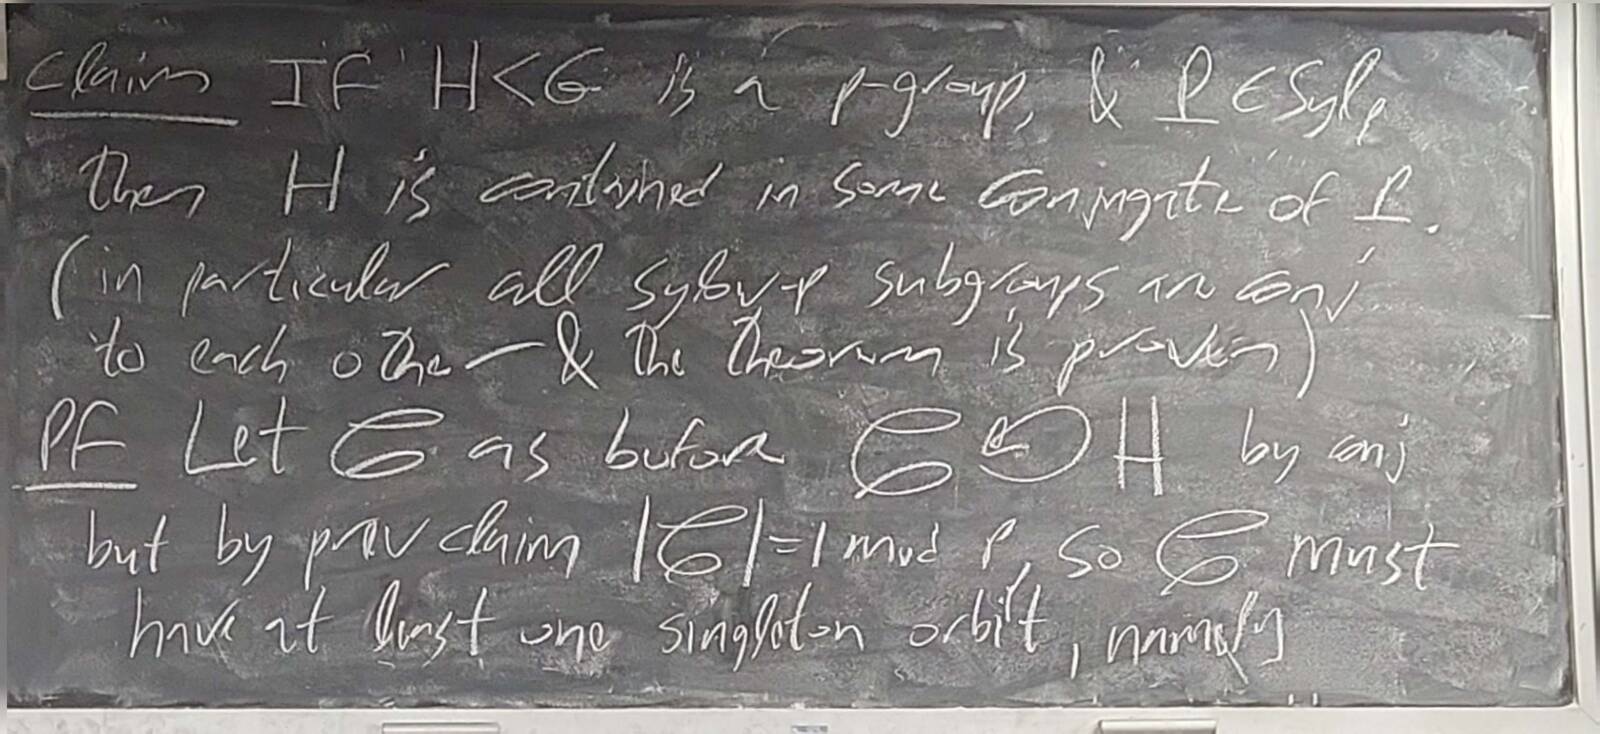 Claim If H<G is a p-group, & P ∈ Sylp
then H is contained in some conjugate of P.
(in particular all sylow-p subgroups are conj
to each other & the theorem is proven)
PF Let 𝒞 as before 𝒞 ↺ H by conj
but by prev claim |𝒞|=1 mod p, so 𝒞 must
have at least one singleton orbit, namely